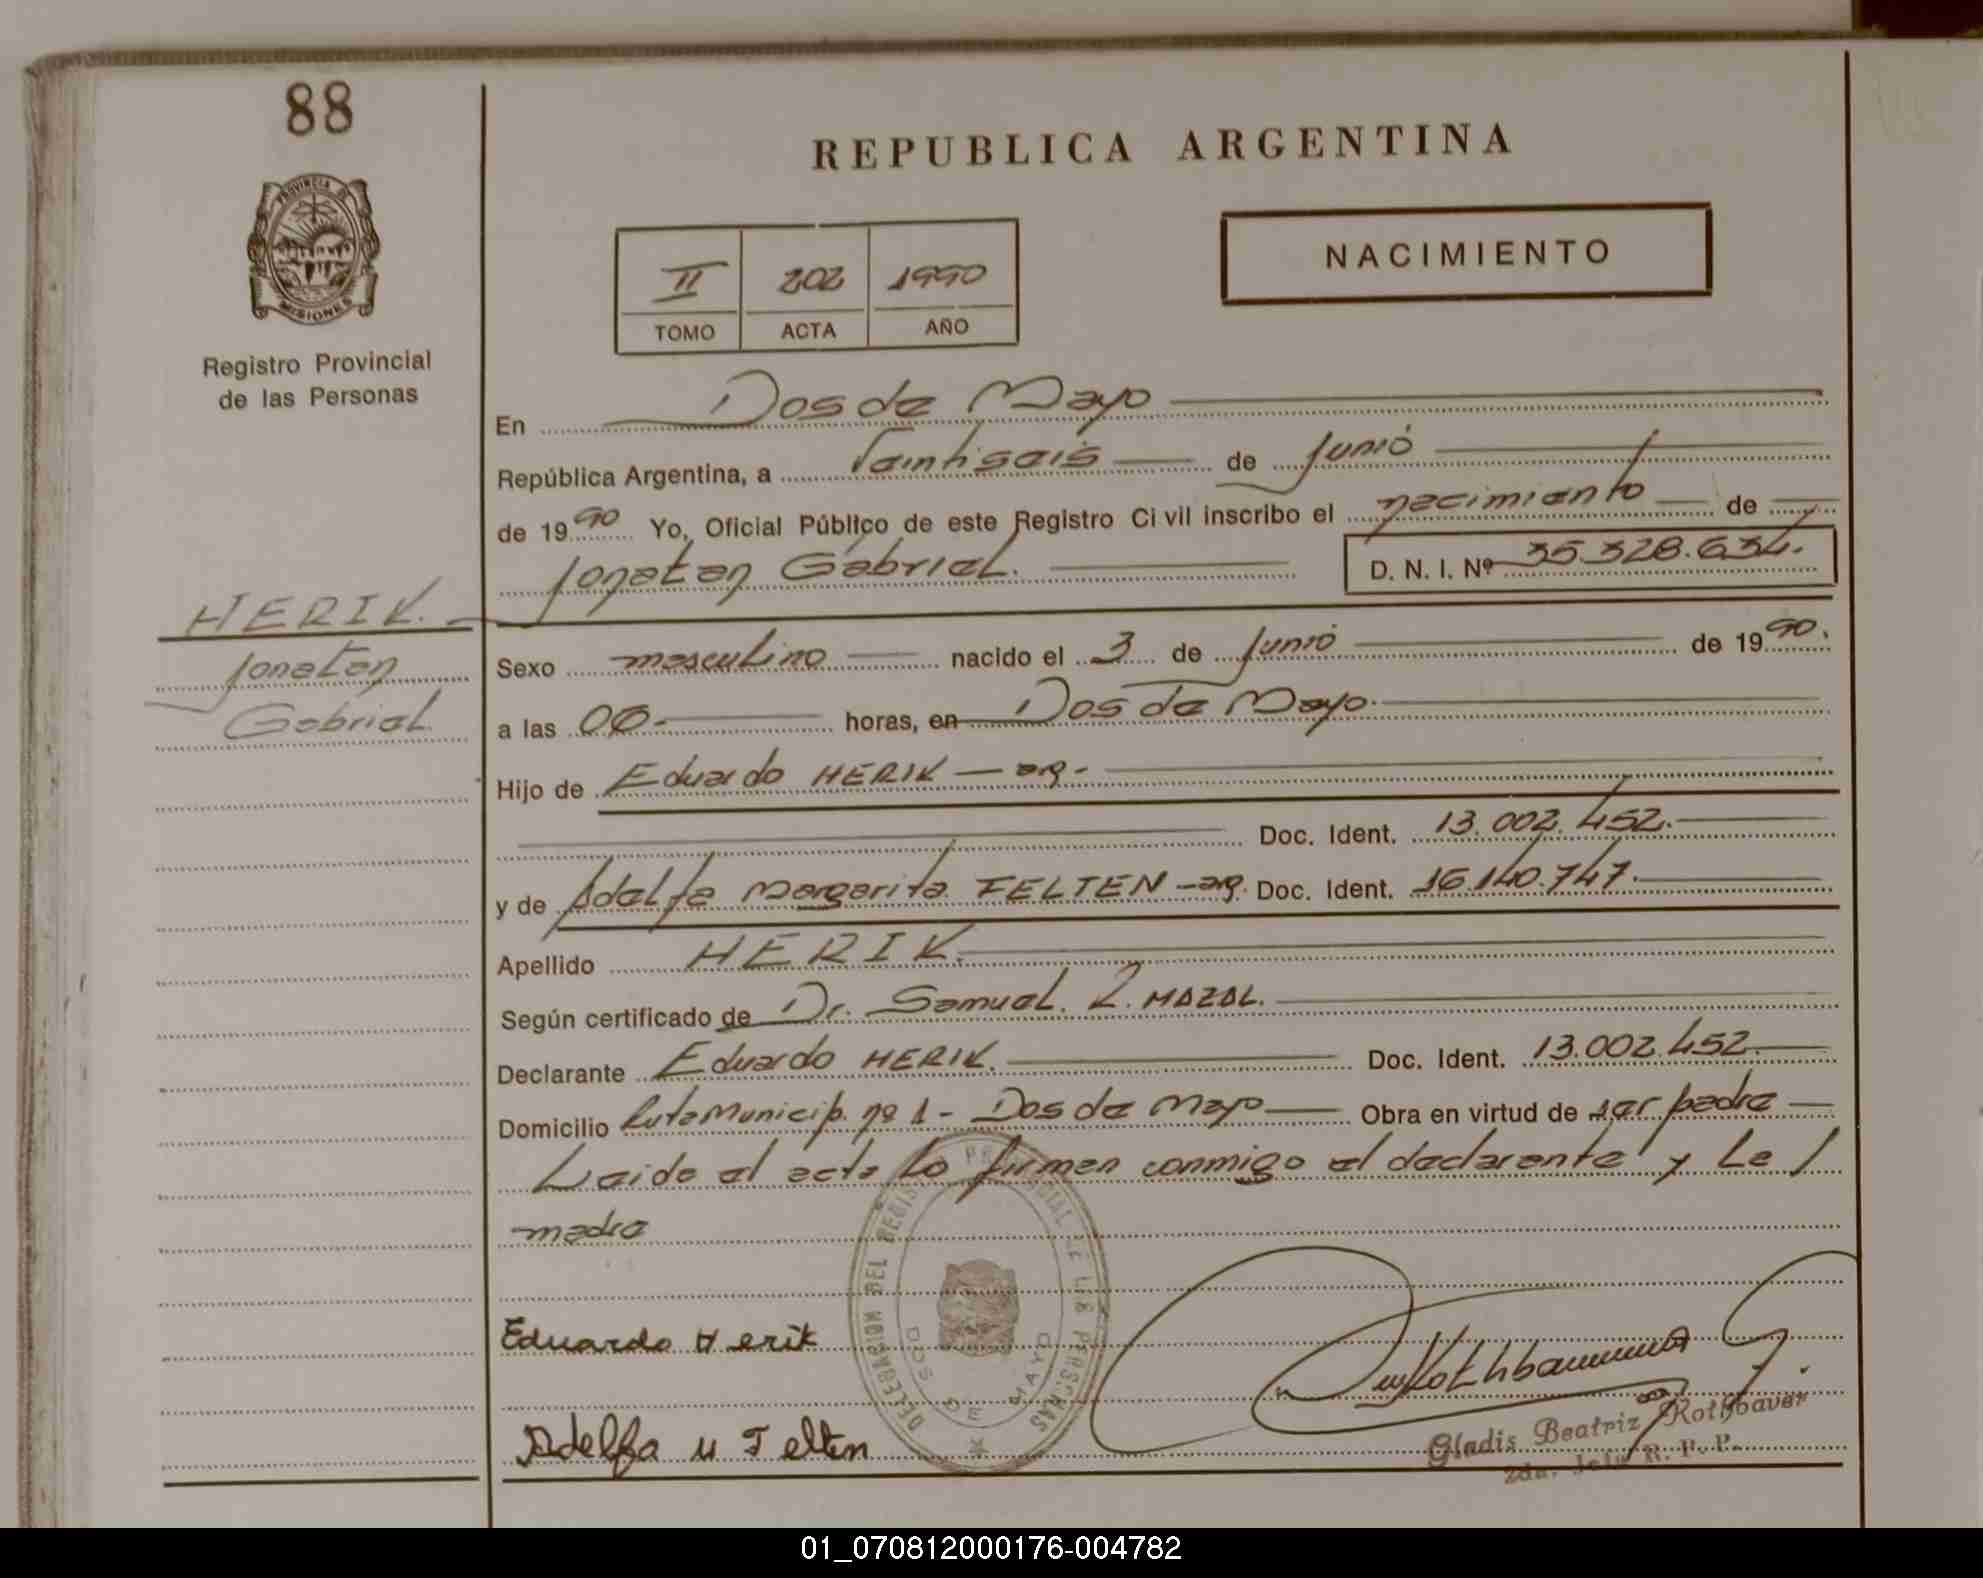 88
REPUBLICA ARGENTINA
PROVINCIA DE
MISIONES
Registro Provincial
de las Personas
NACIMIENTO
II 202 1990
TOMO ACTA AÑO
En Dos de Mayo
República Argentina, a Veintiseis de Junio
de 1990 Yo, Oficial Público de este Registro Civil inscribo el nacimiento de
Jonatan Gabriel. D. N. I. Nº 35.328.634.
HERIK.
Jonatan
Gabriel
Sexo masculino nacido el 3 de Junio de 1990.
a las 06.- horas, en Dos de Mayo.
Hijo de Eduardo HERIK - arg-
Doc. Ident. 13.002.452.
y de Adelfa Margarita FELTEN - arg. Doc. Ident. 16.140.747.
Apellido HERIK.
Según certificado de Dr. Samuel. L. MAZAL.
Declarante Eduardo HERIK. Doc. Ident. 13.002.452.
Domicilio Ruta Municip. nº 1 - Dos de Mayo Obra en virtud de ser padre
Leido el acta lo firman conmigo el declarante y la
madre
DELEGACION DEL REGISTRO PROVINCIAL DE LAS PERSONAS
DOS DE MAYO
Eduardo Herik
Adelfa M Felten
Gladis Beatriz Rothbaver
2da. Jefe R. P. P.
01_070812000176-004782